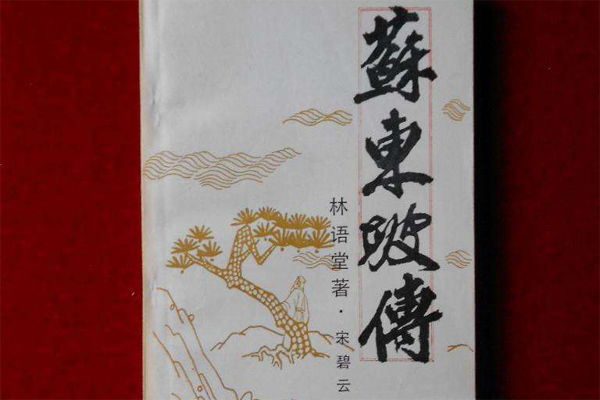 蘇東坡傳
林语堂著·宋碧云